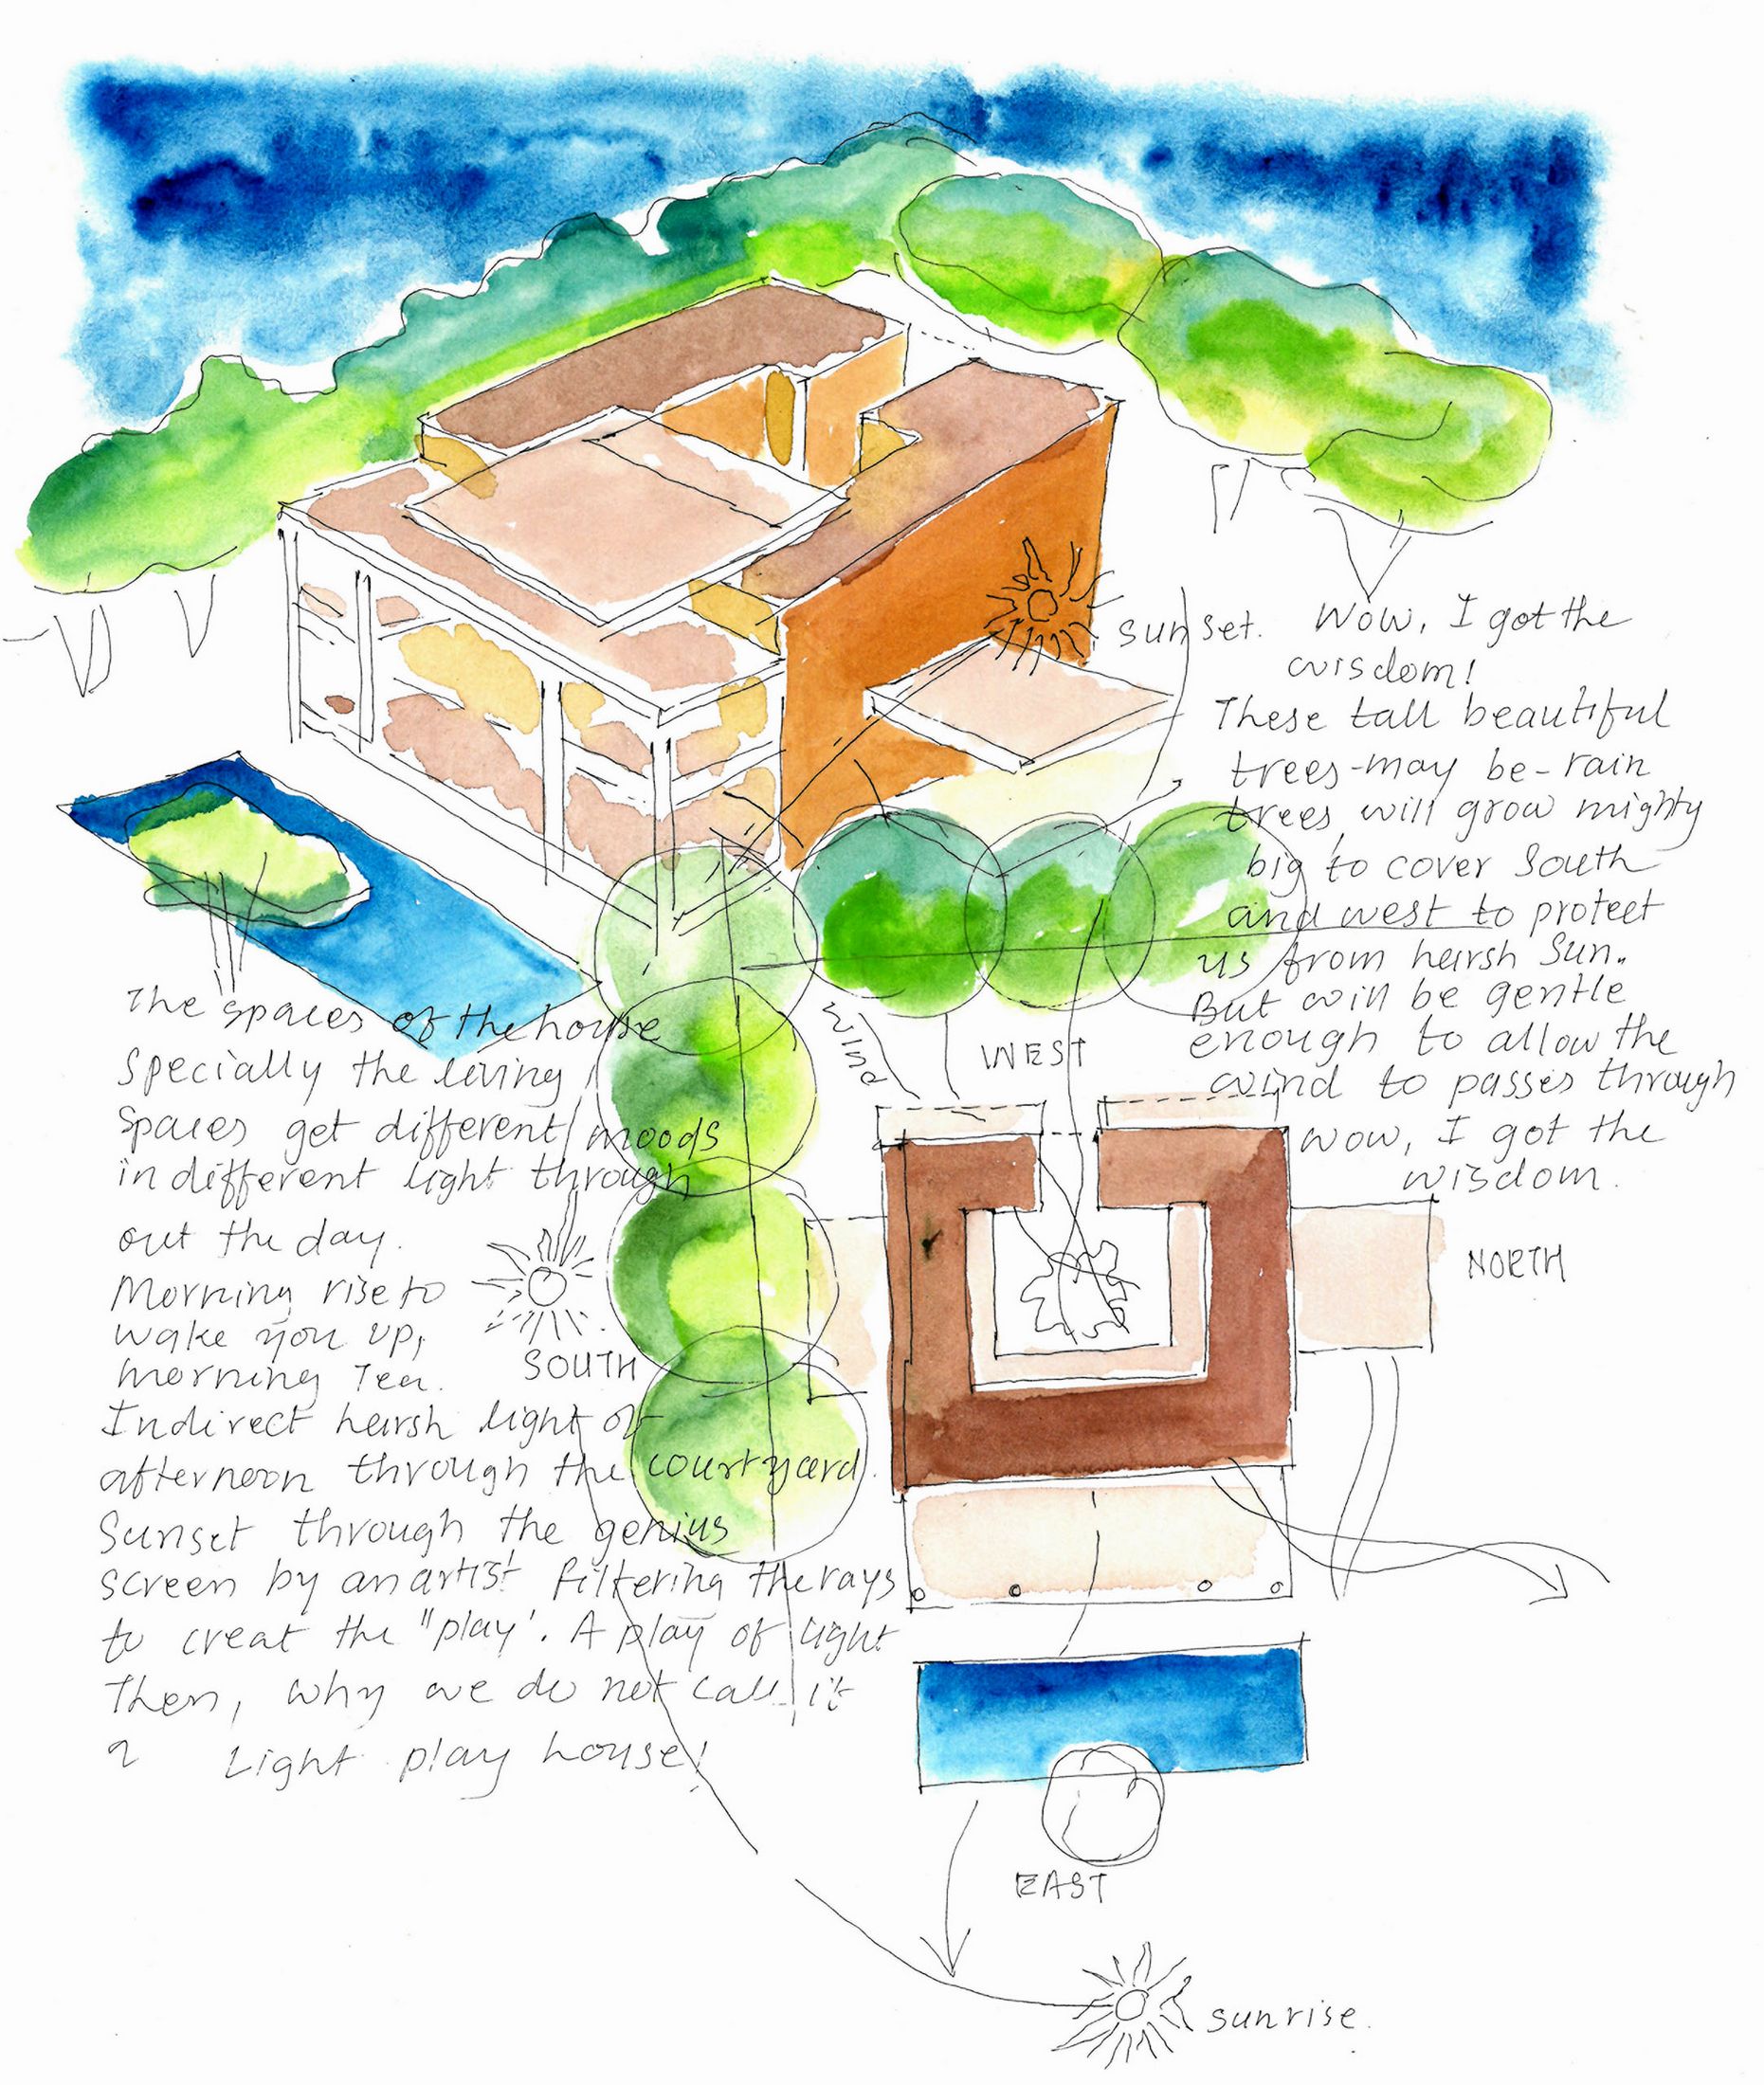 sunset.
Wow, I got the
wisdom!
These tall beautiful
trees-may be-rain
trees, will grow mighty
big to cover South
and west to protect
us from harsh Sun.
But will be gentle
enough to allow the
wind to passes through
wow, I got the
wisdom.
The spaces of the house
Specially the living
Spaces get different moods
in different light through
out the day.
Morning rise to
wake you up,
morning Tea.
Indirect harsh light of
afternoon through the courtyard.
Sunset through the genius
screen by an artist filtering the rays
to creat the "play'. A play of light
Then, why we do not call it
a Light play house!
wind
WEST
NORTH
SOUTH
EAST
sunrise.